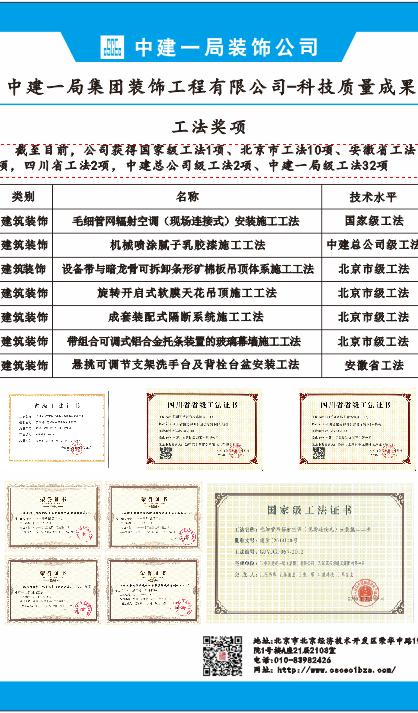 中建一局装饰公司
中建一局集团装饰工程有限公司-科技质量成果
工法奖项
截至目前，公司获得国家级工法1项、北京市工法10项、安徽省工法
项，四川省工法2项，中建总公司级工法2项、中建一局级工法32项
类别 名称 技术水平
建筑装饰 毛细管网辐射空调（现场连接式）安装施工工法 国家级工法
建筑装饰 机械喷涂腻子乳胶漆施工工法 中建总公司级工法
建筑装饰 设备带与暗龙骨可拆卸条形矿棉板吊顶体系施工工法 北京市级工法
建筑装饰 旋转开启式软膜天花吊顶施工工法 北京市级工法
建筑装饰 成套装配式隔断系统施工工法 北京市级工法
建筑装饰 带组合可调式铝合金托条装置的玻璃幕墙施工工法 北京市级工法
建筑装饰 悬挑可调节支架洗手台及背栓台盆安装工法 安徽省工法
四川省省级工法证书
四川省省级工法证书
荣誉证书
荣誉证书
荣誉证书
荣誉证书
国家级工法证书
地址:北京市北京经济技术开发区荣华中路1
院1号楼A座21层2108室
电话:010-83982426
网址: http://www.cscec1bzs.com/